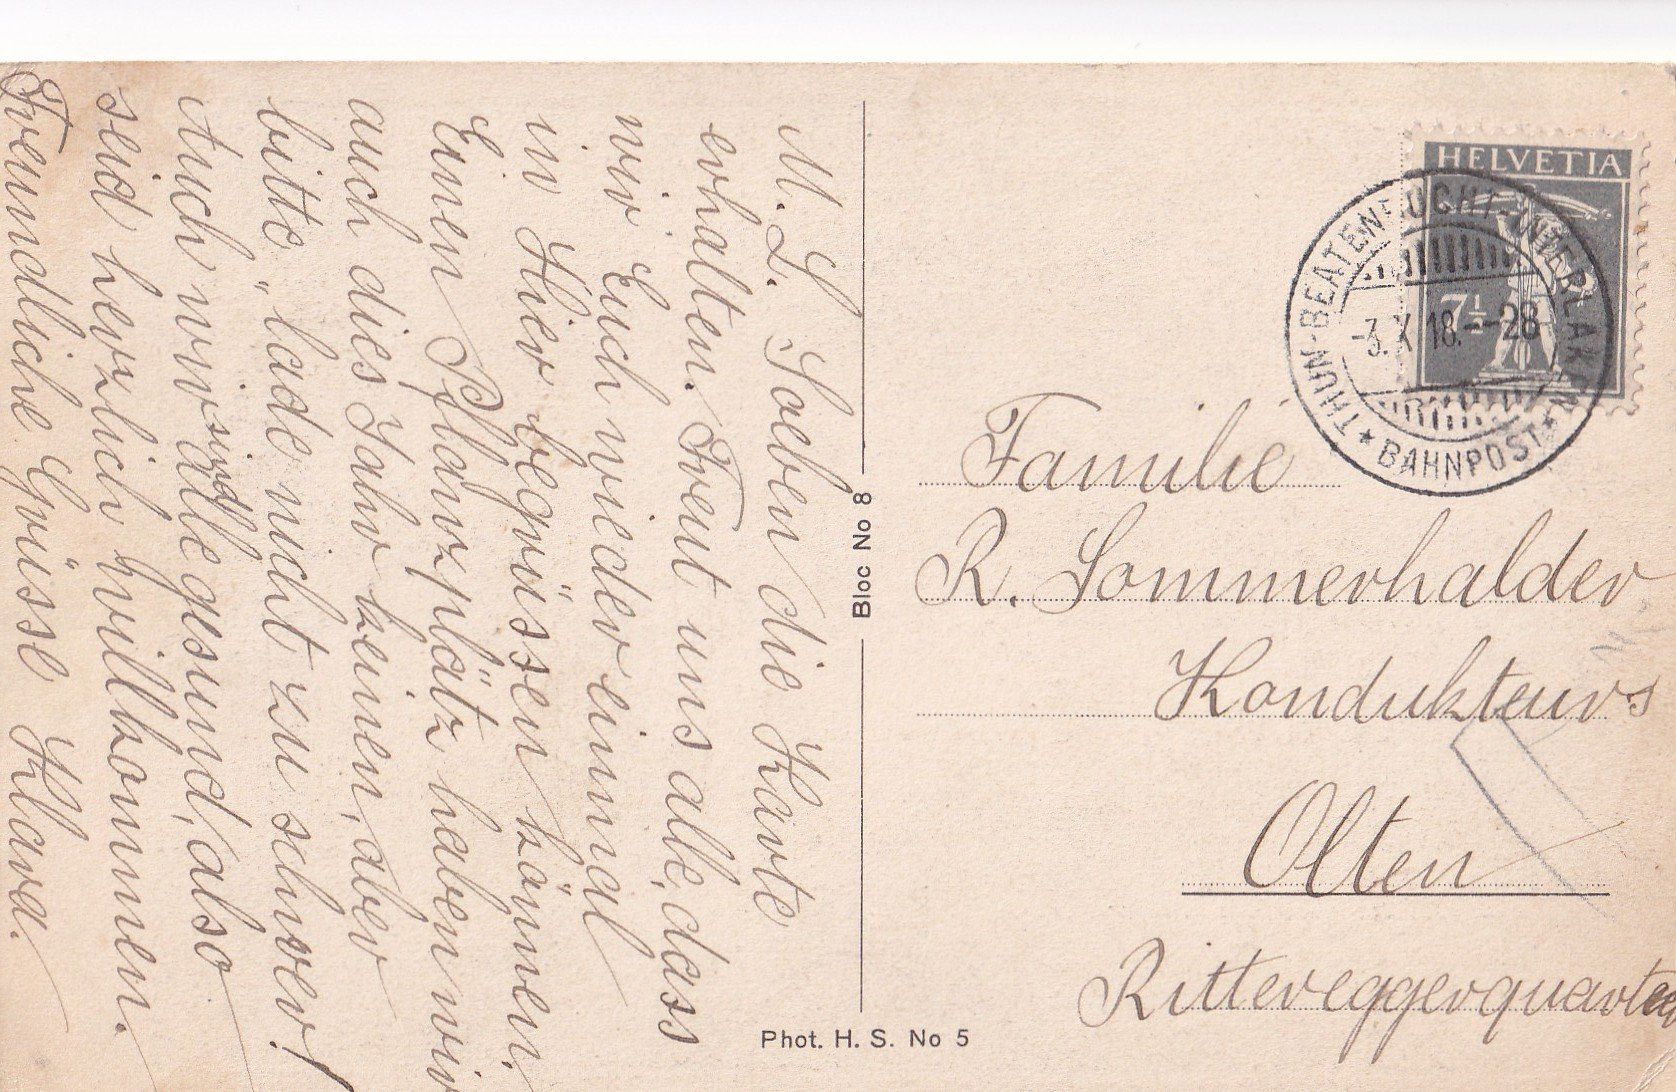 M. L. Soeben die Karte
erhalten. Freut uns alle, dass
wir Euch wieder einmal
in Hier begrüssen können.
Einen Pflanzplätz haben wir
auch dies Jahr keinen, aber
bitte „lade nicht zu schwer!
Auch wir sind alle gesund, also
seid herzlich willkommen.
Freundliche Grüsse Klara.
Bloc No 8
Phot. H. S. No 5
HELVETIA
7½
THUN-BEATENBUCHT-INTERLAKEN
-3. X 18.--28
★ BAHNPOST ★
Familie
R. Sommerhalder
Kondukteurs
Olten
Ritter